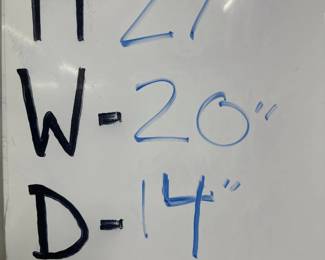 H 27
W-20"
D-14"